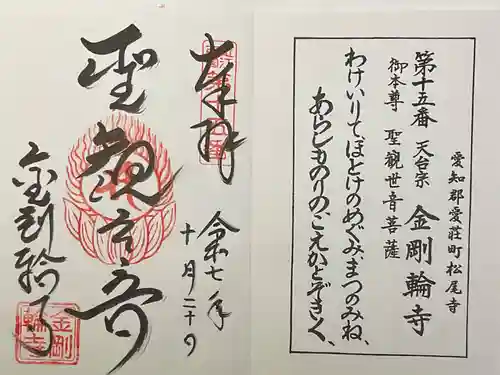 愛知郡愛荘町松尾寺
第十五番 天台宗 金剛輪寺
御本尊 聖観世音菩薩
わけいりて、ほとけのめぐみ、まつのみね、
あらしものりのこえかとぞきく、
奉拝
令和七年
十月二十日
聖観世音
金剛輪寺
金剛
輪寺